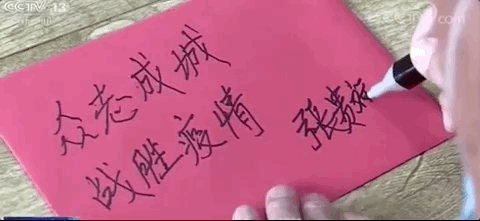 CCTV 13
CCTV.com
众志成城
战胜疫情
张贵